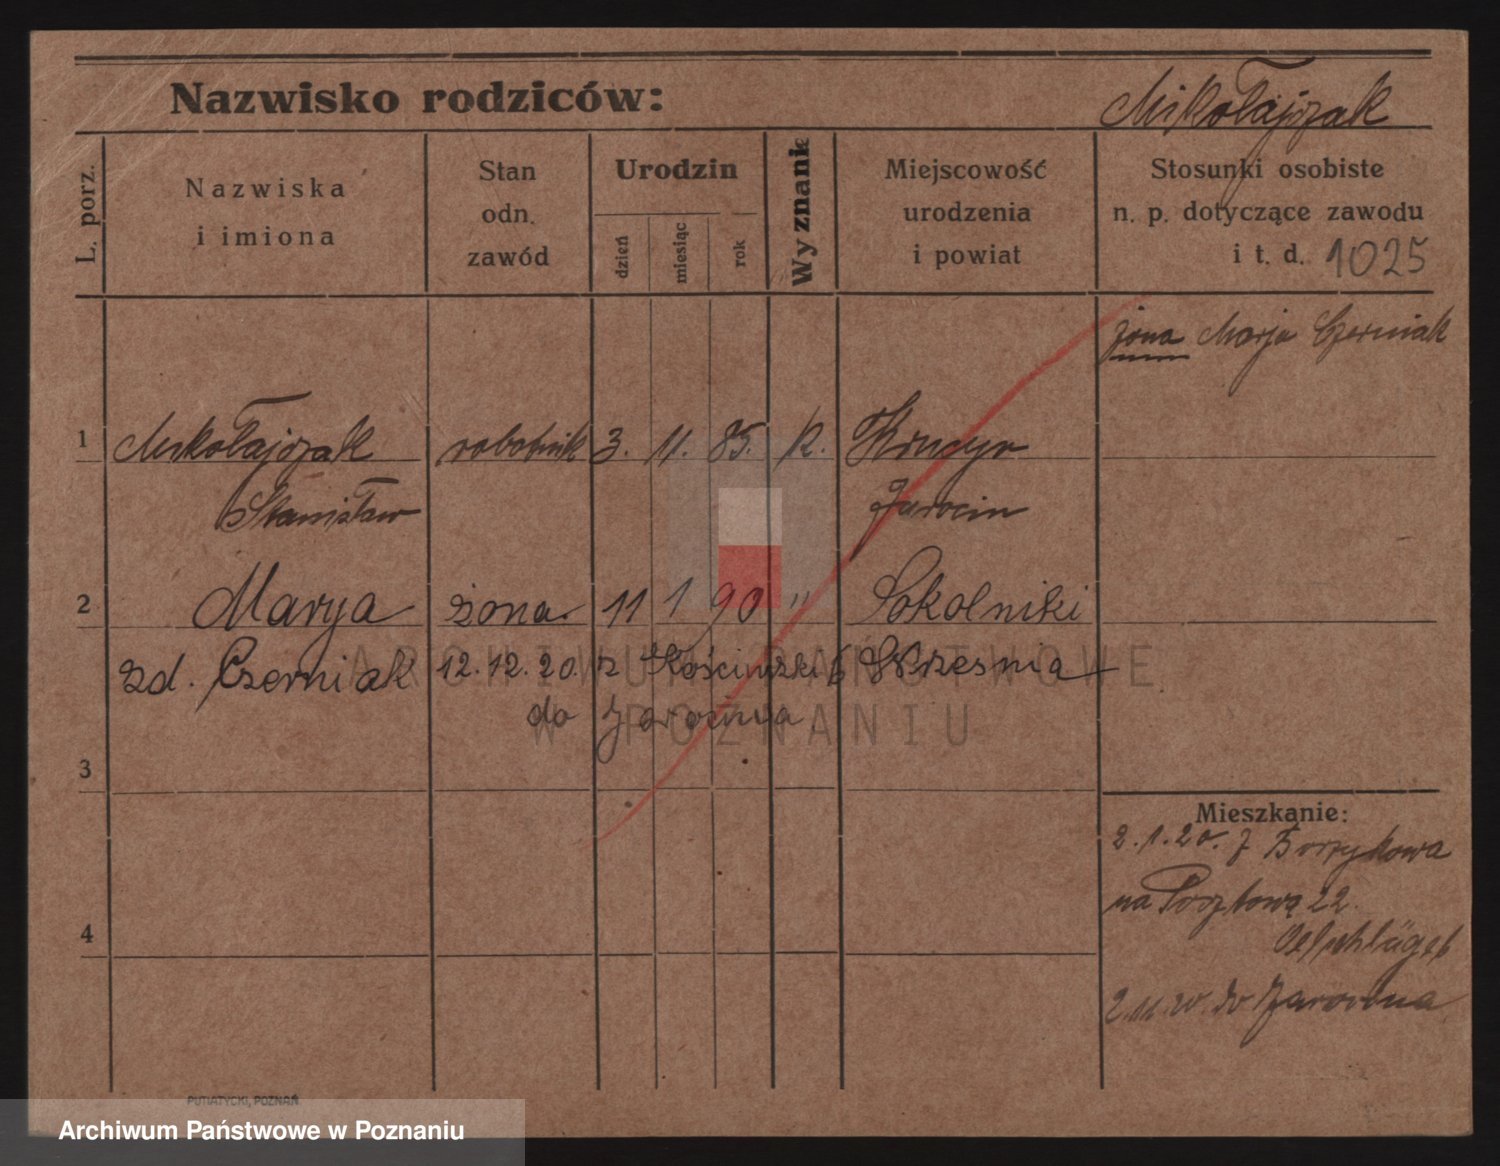 Nazwisko rodziców: Mikołajczak
L. porz.
Nazwiska
i imiona
Stan
odn.
zawód
Urodzin
dzień
miesiąc
rok
Wyznanie
Miejscowość
urodzenia
i powiat
Stosunki osobiste
n. p. dotyczące zawodu
i t. d. 1025
żona Marja Czerniak
1 Mikołajczak robotnik 3. 11. 85. k.
Stanisław Jarocin
2 Marya żona 11 1 90 " Sokolniki
zd. Czerniak 12.12.20. z Kościuszki 6 Września
do Jarocina
3
4
Mieszkanie:
2.1.20. z Borzykowa
na Pocztową 22.
2.11.20. do Jarocina
PUTIATYCKI, POZNAŃ
ARCHIWUM PAŃSTWOWE
W POZNANIU
Archiwum Państwowe w Poznaniu